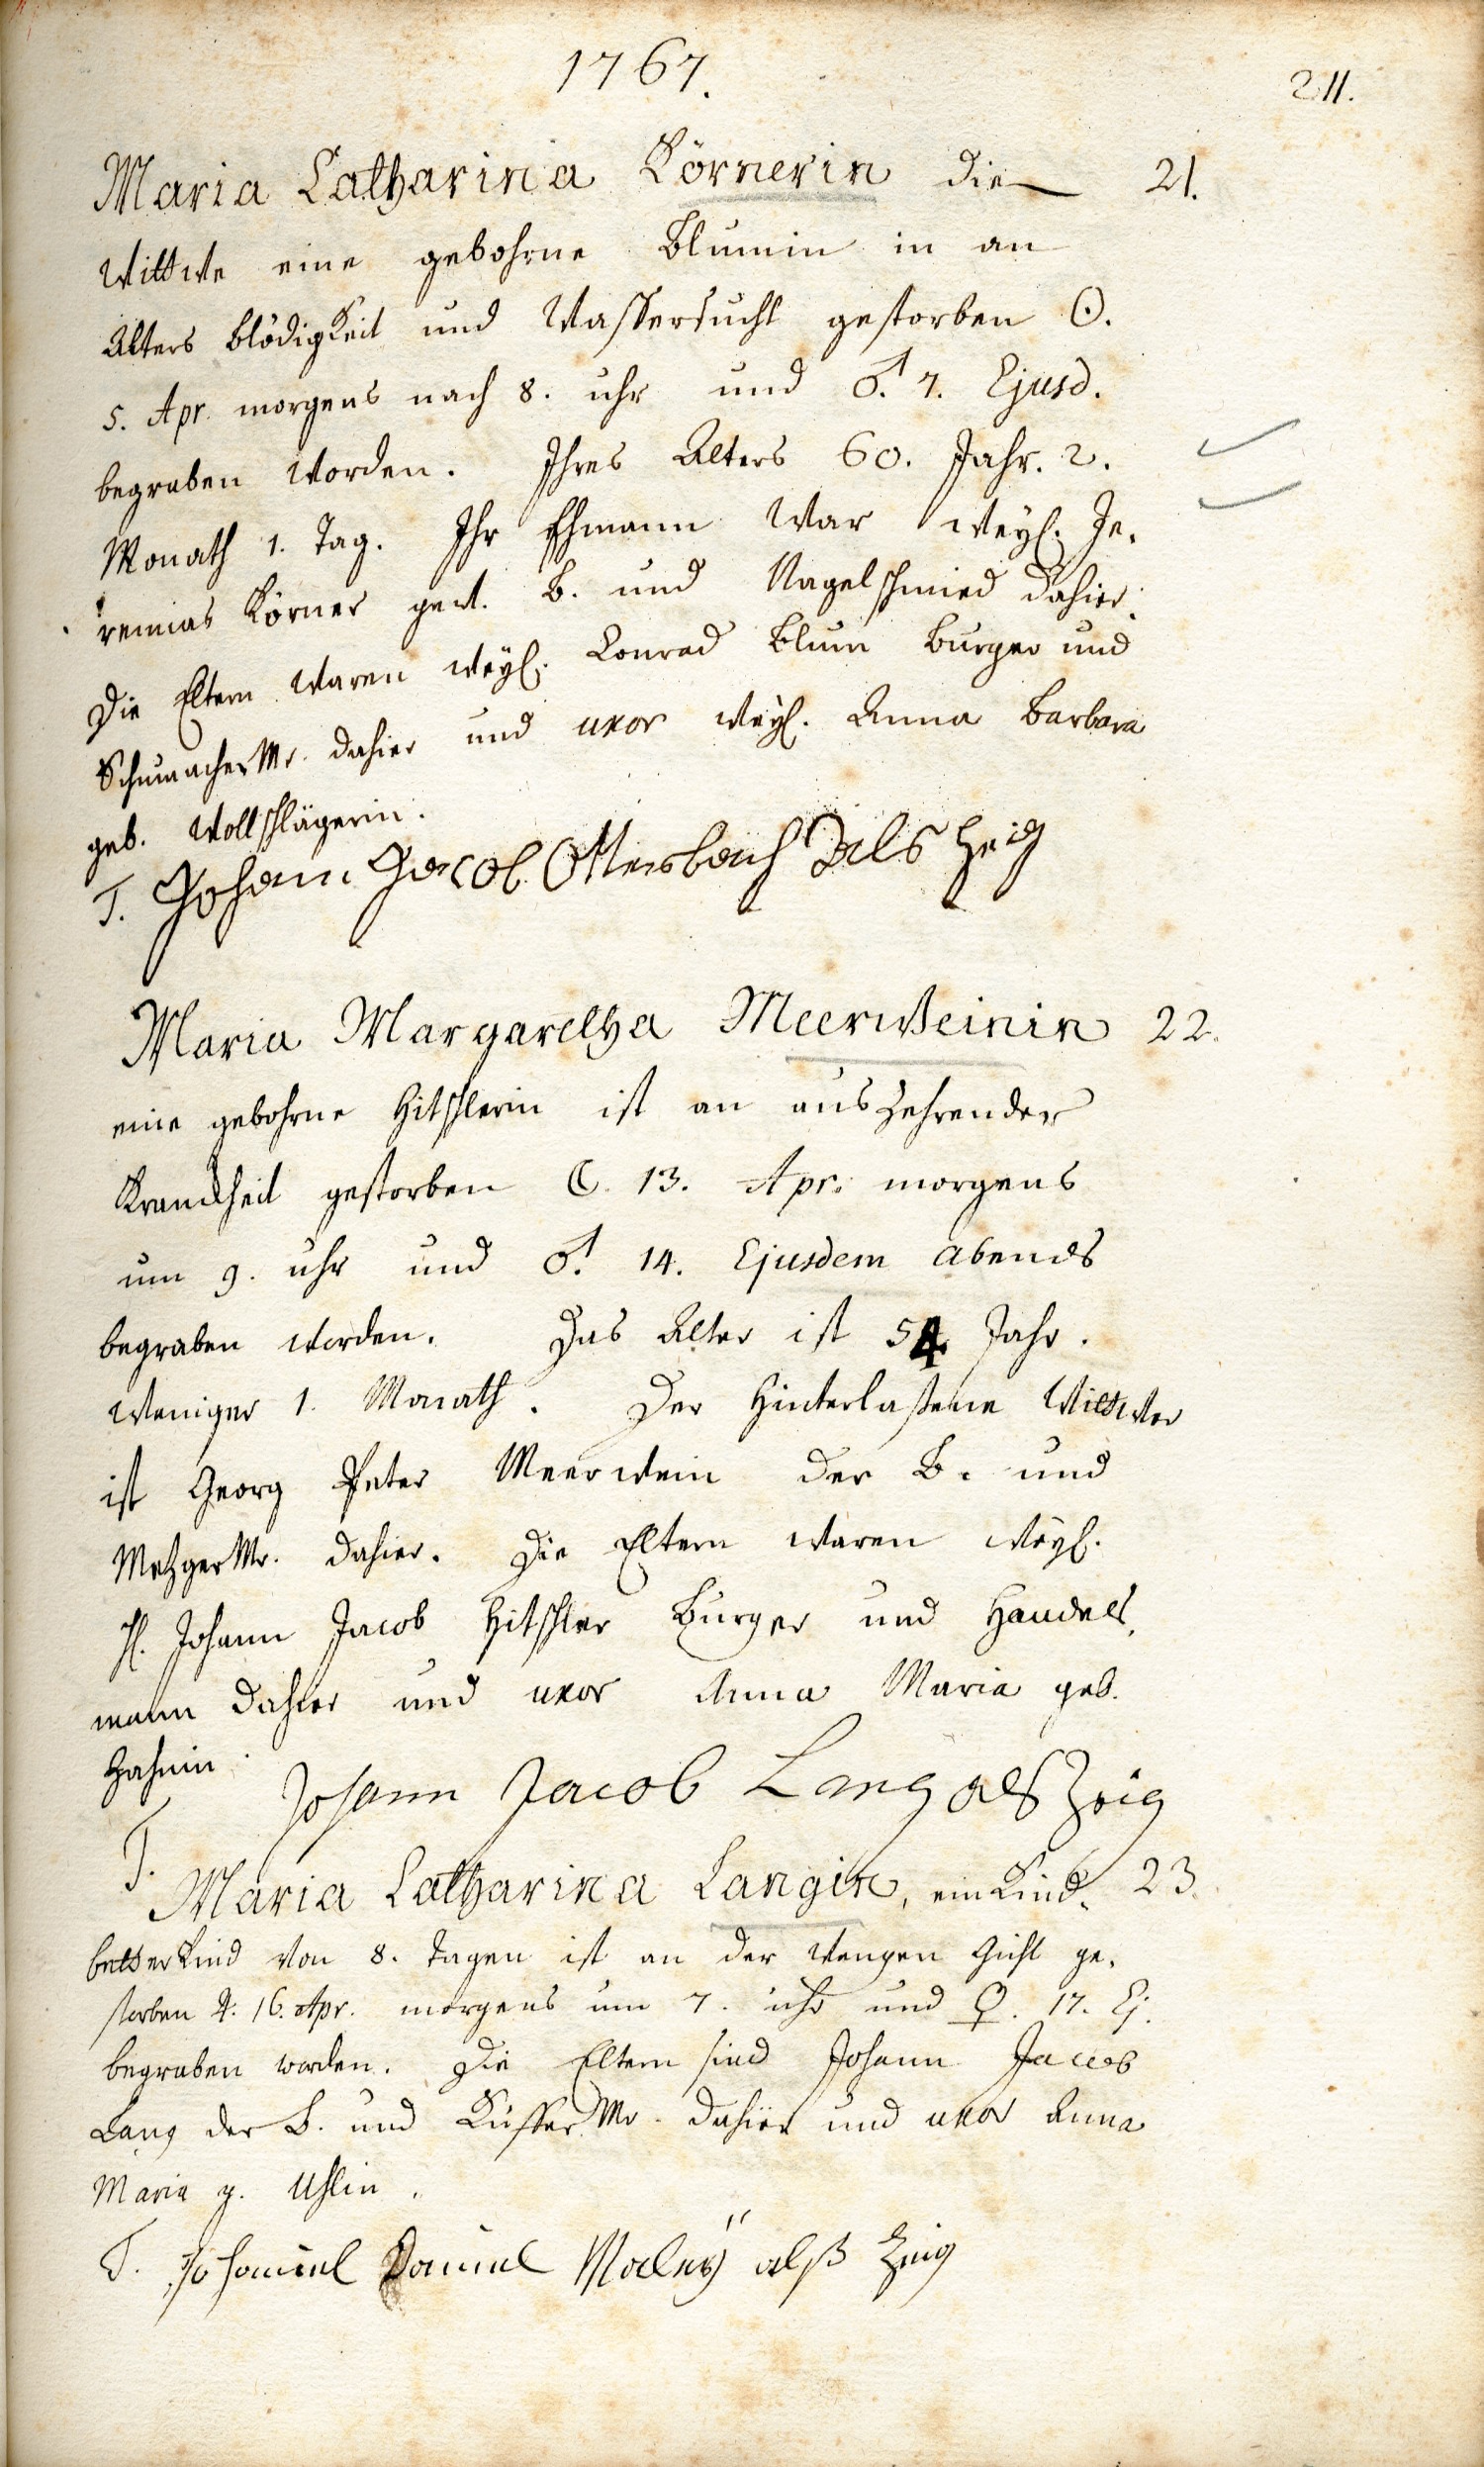 1767.
211.
Maria Catharina Körnerin die 21.
Wittwe eine gebohrne Blumin in an
Alters Blödigkeit und Wassersucht gestorben ☉.
5. Apr. morgens nach 8. uhr und ♂. 7. Ejusd.
begraben worden. Ihres Alters 60. Jahr. 2.
Monath 1. Tag. Ihr Ehmann war weyl. Je-
remias Körner gew. B. und Nagelschmied dahier.
Die Eltern waren weyl. Conrad Blum Burger und
Schumacher Mr. dahier und uxor weyl. Anna Barbara
geb. Wollschlägerin.
T. Johann Jacob Ottersbach als Zeig
Maria Margaretha Meerweinin 22.
eine gebohrne Hitschlerin ist an auszehrender
Kranckheit gestorben ☾. 13. Apr. morgens
um 9. uhr und ♂. 14. Ejusdem abends
begraben worden. Das Alter ist 54 Jahr.
weniger 1. Monath. Der Hinterlaßene Wittwer
ist Georg Peter Meerwein der B. und
Metzger Mr. dahier. Die Eltern waren weyl.
H. Johann Jacob Hitschler Burger und Handels-
mann dahier und uxor Anna Maria geb.
Hahnin.
T. Johann Jacob Lang als Zeig
Maria Catharina Langin, ein Kind- 23.
betterkind von 8. Tagen ist an der Gicht ge-
storben ♃. 16. Apr. morgens um 7. uhr und ♀. 17. Ej.
begraben worden. Die Eltern sind Johann Jacob
Lang der B. und Küffer Mr. dahier und uxor Anna
Maria g. Uhlin.
T. Daniel alß Zeig